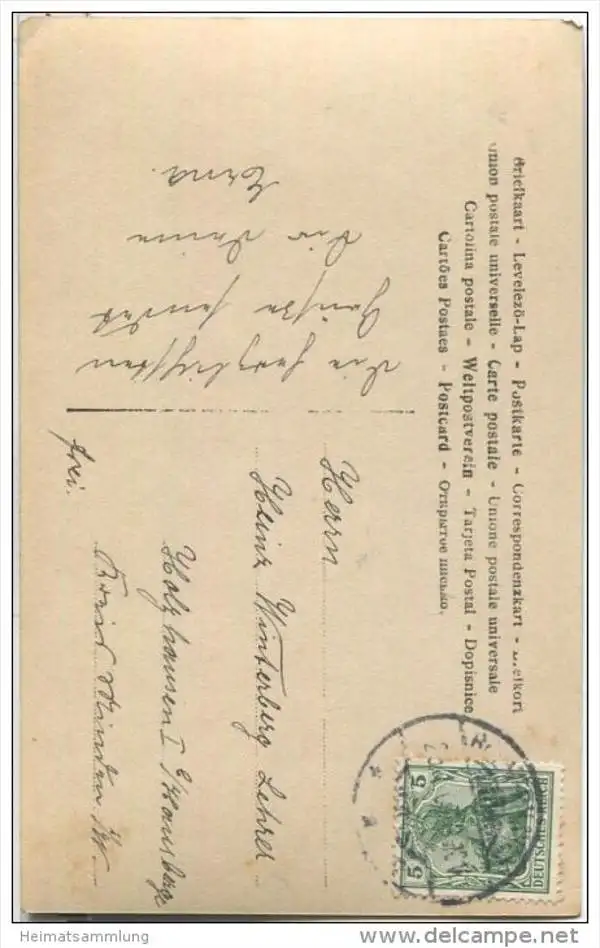 Briefkaart - Levelező-Lap - Postkarte - Correspondenzkart - Brefkort
Union postale universelle - Carte postale - Unione postale universale
Cartolina postale - Weltpostverein - Tarjeta Postal - Dopisnice
Cartões Postaes - Postcard - Открытое письмо.
Die herzlichsten
Grüße sendet
Dir Deine
Erna.
Herrn
Heinz Winterberg Lehrer
Holzhausen I
Kreis Minden i/W
frei.
5
5
DEUTSCHES REICH
Heimatsammlung
www.delcampe.net